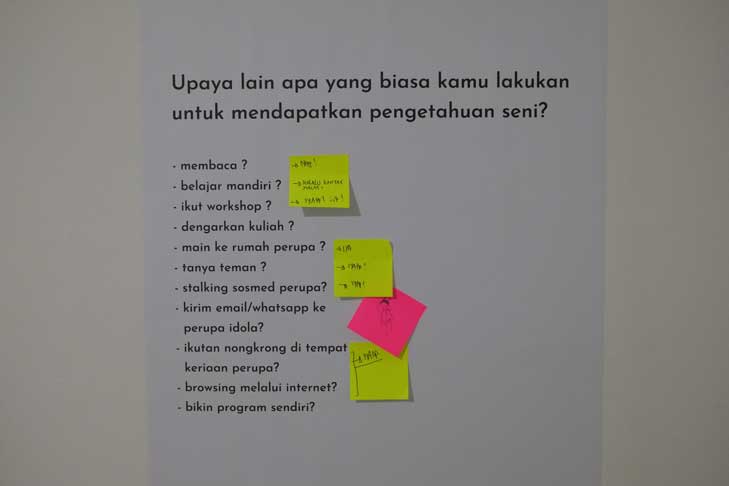 Upaya lain apa yang biasa kamu lakukan
untuk mendapatkan pengetahuan seni?
- membaca ?
- belajar mandiri ?
- ikut workshop ?
- dengarkan kuliah ?
- main ke rumah perupa ?
- tanya teman ?
- stalking sosmed perupa?
- kirim email/whatsapp ke
perupa idola?
- ikutan nongkrong di tempat
keriaan perupa?
- browsing melalui internet?
- bikin program sendiri?